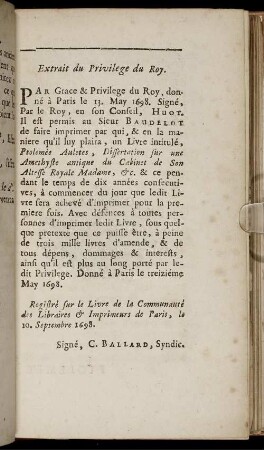 Extrait du Privilege du Roy.
PAR Grace & Privilege du Roy, don-
né à Paris le 13. May 1698. Signé,
Par le Roy, en son Conseil, HUOT.
Il est permis au Sieur BAUDELOT
de faire imprimer par qui, & en la ma-
niere qu'il luy plaira, un Livre intitulé,
Ptolomée Auletes, Dissertation sur une
Amethyste antique du Cabinet de Son
Altesse Royale Madame, &c. & ce pen-
dant le temps de dix années consecuti-
ves, à commencer du jour que ledit Li-
vre sera achevé d'imprimer pour la pre-
miere fois. Avec défences à toutes per-
sonnes d'imprimer ledit Livre, sous quel-
que pretexte que ce puisse être, à peine
de trois mille livres d'amende, & de
tous dépens, dommages & interests,
ainsi qu'il est plus au long porté par le-
dit Privilege. Donné à Paris le treiziéme
May 1698.
Registré sur le Livre de la Communauté
des Libraires & Imprimeurs de Paris, le
10. Septembre 1698.
Signé, C. BALLARD, Syndic.